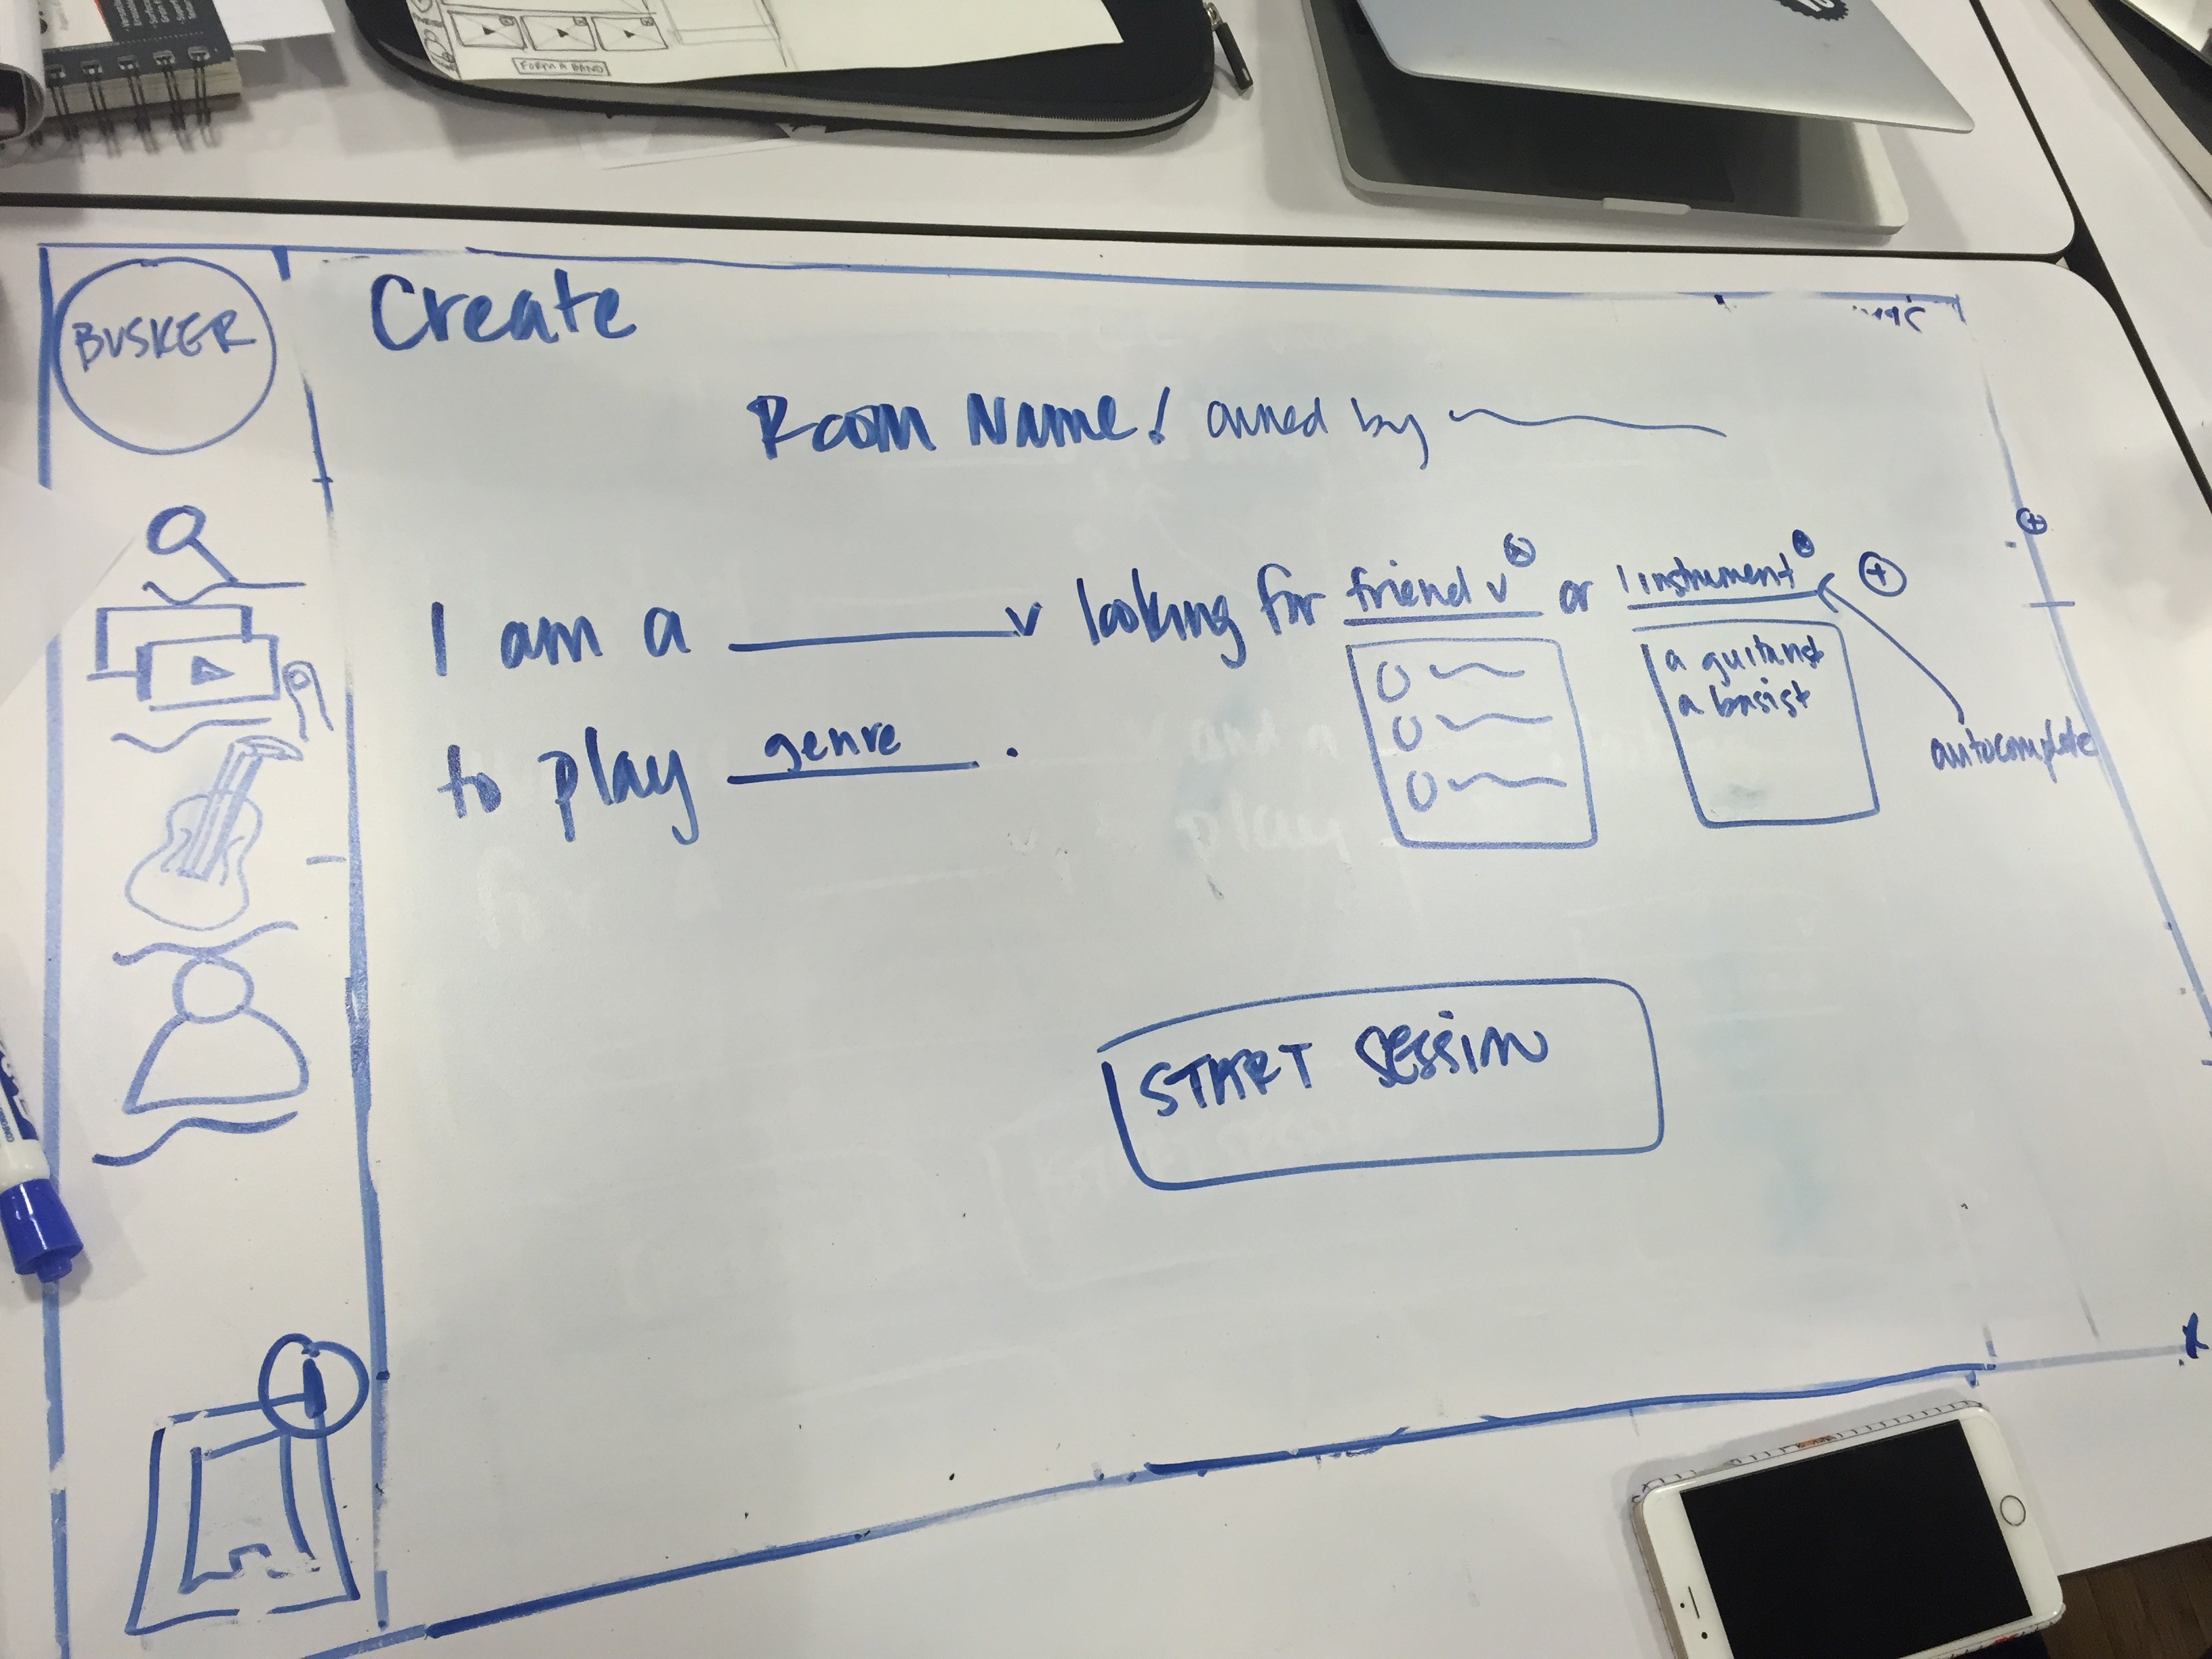 FORM A BAND
BUSKER
Create
Room Name! owned by
I am a ______ v looking for friend v or 1 instrument
a guitarist
a basist
autocomplete
to play genre .
START SESSION